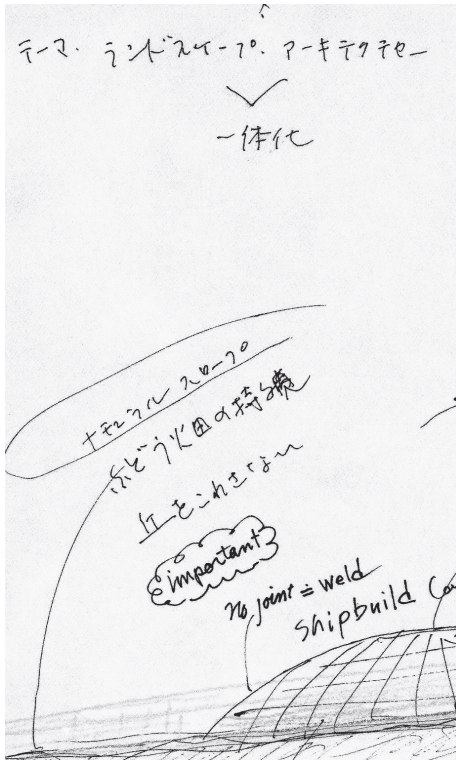 テーマ. ランドスケープ. アーキテクチャー
一体化
ナチュラル スロープ
ぶどう畑の持続
丘をこわさない
important
no joint = weld
shipbuild